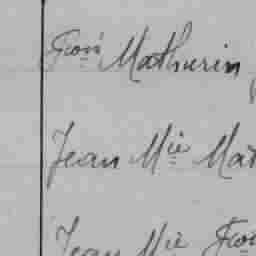 Fçois Mathurin
Jean Mie Mat
Jean Mie Fço